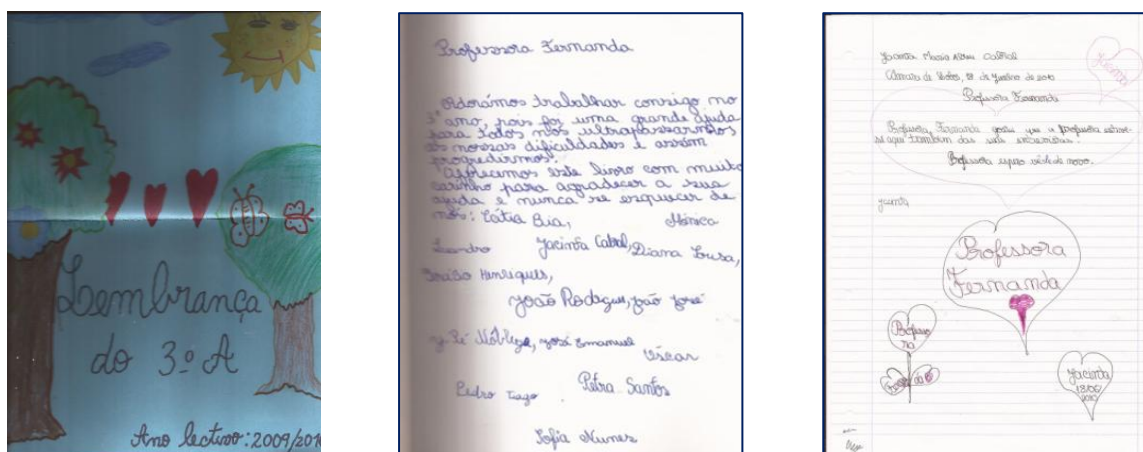 Lembrança
do 3º A
Ano lectivo: 2009/201
Professora Fernanda
Adorámos trabalhar consigo no
3º ano, pois foi uma grande ajuda
para todos nós ultrapassarmos
as nossas dificuldades e assim
progredirmos.
Oferecemos este livro com muito
carinho para agradecer a sua
ajuda e nunca se esquecer de
nós: Cátia Bia, Mónica
Leandro Jacinta Cabral, Diana Sousa,
Henriques,
João Rodrigues, João José
Nóbrega, José Emanuel
Óscar
Pedro Tiago Petra Santos
Sofia Nunes
Jacinta Maria Cabral
Câmara de Lobos, de Junho de 2010
Jacinta
Professora Fernanda
Professora Fernanda gostei que a professora
aqui também das
Professora espero vê-la de novo.
Jacinta
Professora
Fernanda
Professo
ra
Jacinta
18/06/
2010